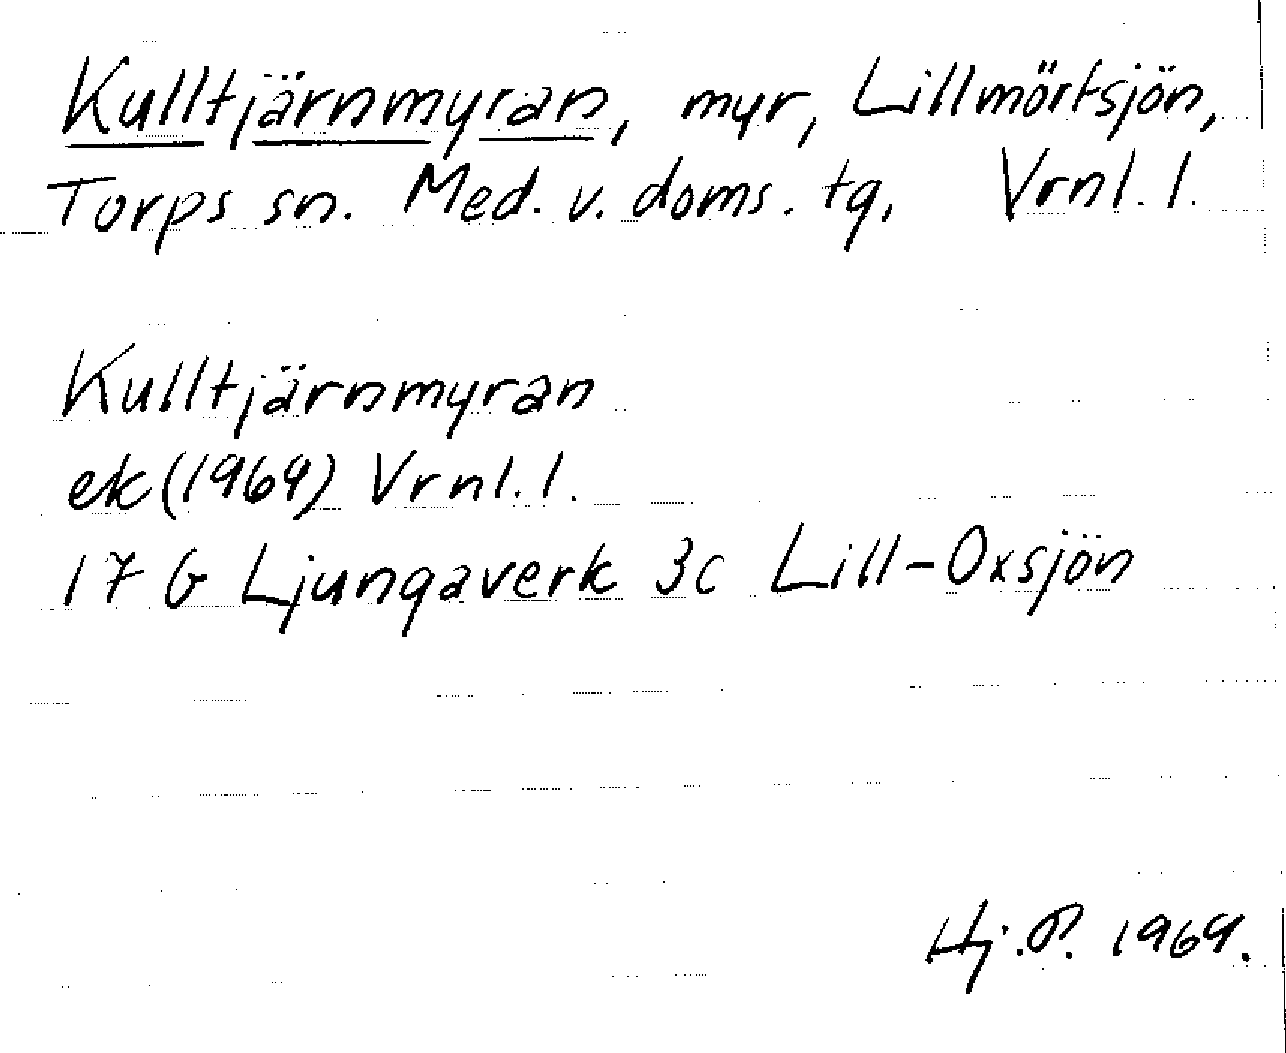 Kulltjärnmyran, myr, Lillmörtsjön,
Torps sn. Med. v. doms. tg, Vrnl. l.
Kulltjärnmyran
ek (1969) Vrnl. l.
17 G Ljungaverk 3c Lill-Oxsjön
Hj. P. 1969.